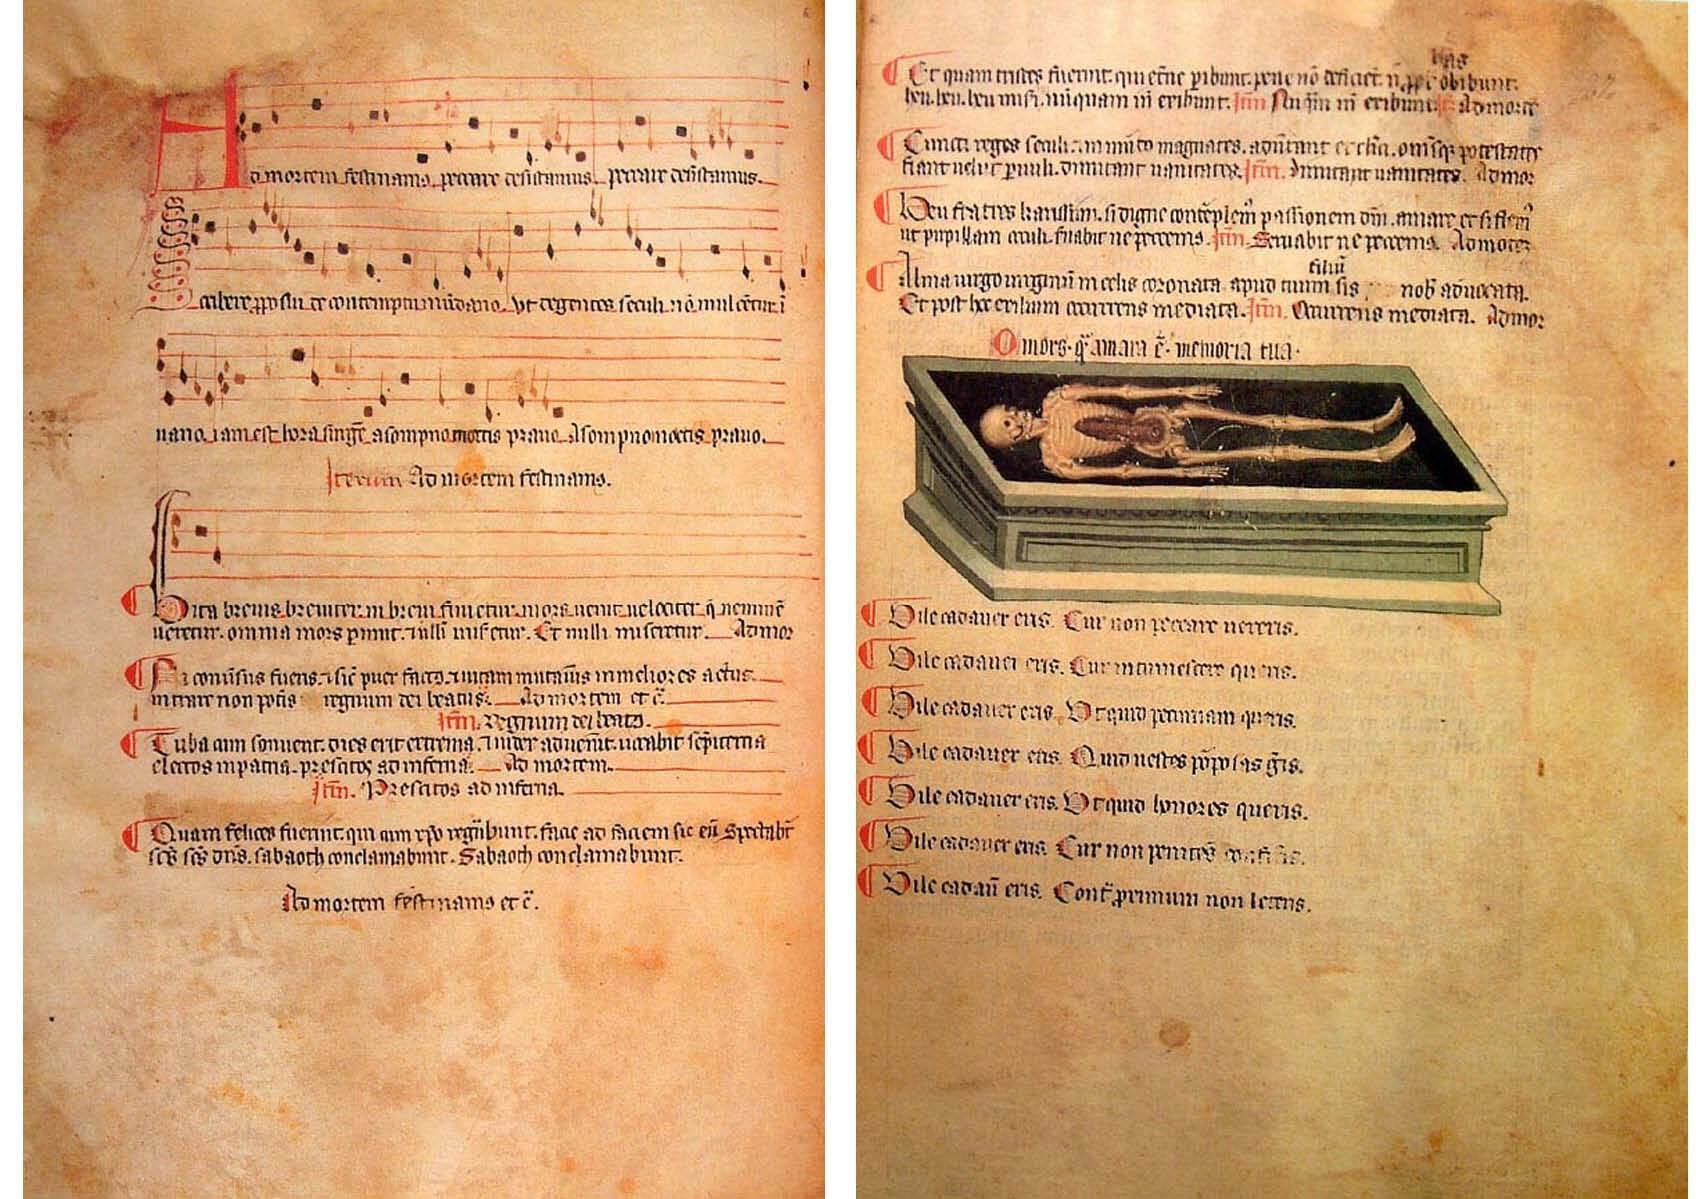 Ad mortem festinamus peccare desistamus. peccare desistamus.
Scribere pposui de contemptu mūdano. Vt degentes seculi nō mulcētur ī
uano. iam est hora surgē̄ a sompno mortis prauo. A sompno mortis prauo.
Iterum Ad mortem festinamus.
Vita breuis breuiter in breui finietur. mors uenit uelociter q̄ neminē
ueretur. omnia mors pimit. ⁊ nulli miseretur. Et nulli miseretur. Ad mor
Ni cōuersus fueris. ⁊ sic̄ puer factus. ⁊ uitam mutaueris in meliores actus.
intrare non poteris regnum dei beatus. Ad mortem et c̄.
Itm̄. Regnum dei beatus.
Tuba cum sonuerit. dies erit extrema. ⁊ iudex aduenerit. uocabit sēpiterna
electos in patria. prescitos ad inferna. Ad mortem.
Itm̄. Prescitos ad inferna.
Quam felices fuerint. qui cum xp̄o regnabunt. facie ad faciem sic eū Spectabūt
sc̄s sc̄s dn̄s. sabaoth conclamabunt. Sabaoth conclamabunt.
Ad mortem festinamus et c̄.
Et quam tristes fuerint. qui etn̄e pibunt. pene nō deficiēt. n̄ ppt has obibunt.
heu. heu. heu miseri. nūquam in̄ exibunt. Itm̄ Nūquam in̄ exibunt. Ad morte
Cuncti reges seculi. in mūdo magnates. aduertant et cleri. omnesq̄ potestates
fiant uelut paruuli. dimittant uanitates. Itm̄. Dimittant uanitates. Ad mor
Heu fratres karissimi. si digne contēplem̄ passionem dn̄i. amare et si flem̄
ut pupillam occuli. seruabit ne peccemus. Itm̄. Seruabit ne peccemus. Ad mortē
Alma uirgo uirginū in celis coronata. apud tuum filiū sis nob̄ aduocata.
Et post hoc exilium occurrens mediata. Itm̄. Occurrens mediata. Ad mor
O mors. q̄ amara ē. memoria tua.
Vile cadauer eris. Cur non peccare uereris.
Vile cadauer eris. Cur intumescere queris.
Vile cadauer eris. Vt quid peccuniam queris.
Vile cadauer eris. Quid uestes pōposas geris.
Vile cadauer eris. Vt quid honores queris.
Vile cadauer eris. Cur non penitēs confiteris.
Vile cadau̅ eris. Contra proximum non leteris.